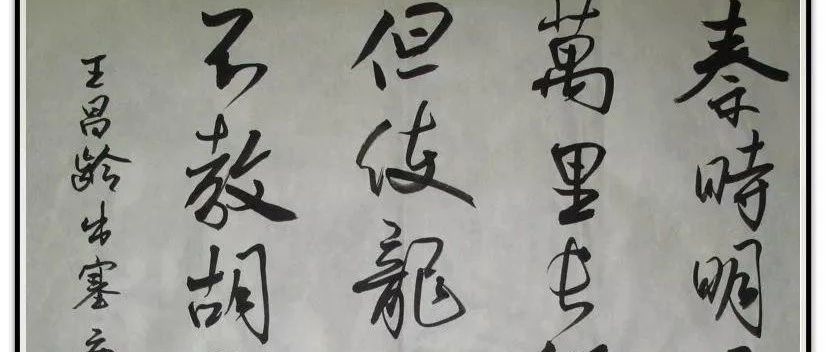 秦時明
萬里長
但使龍
不教胡
王昌齡出塞